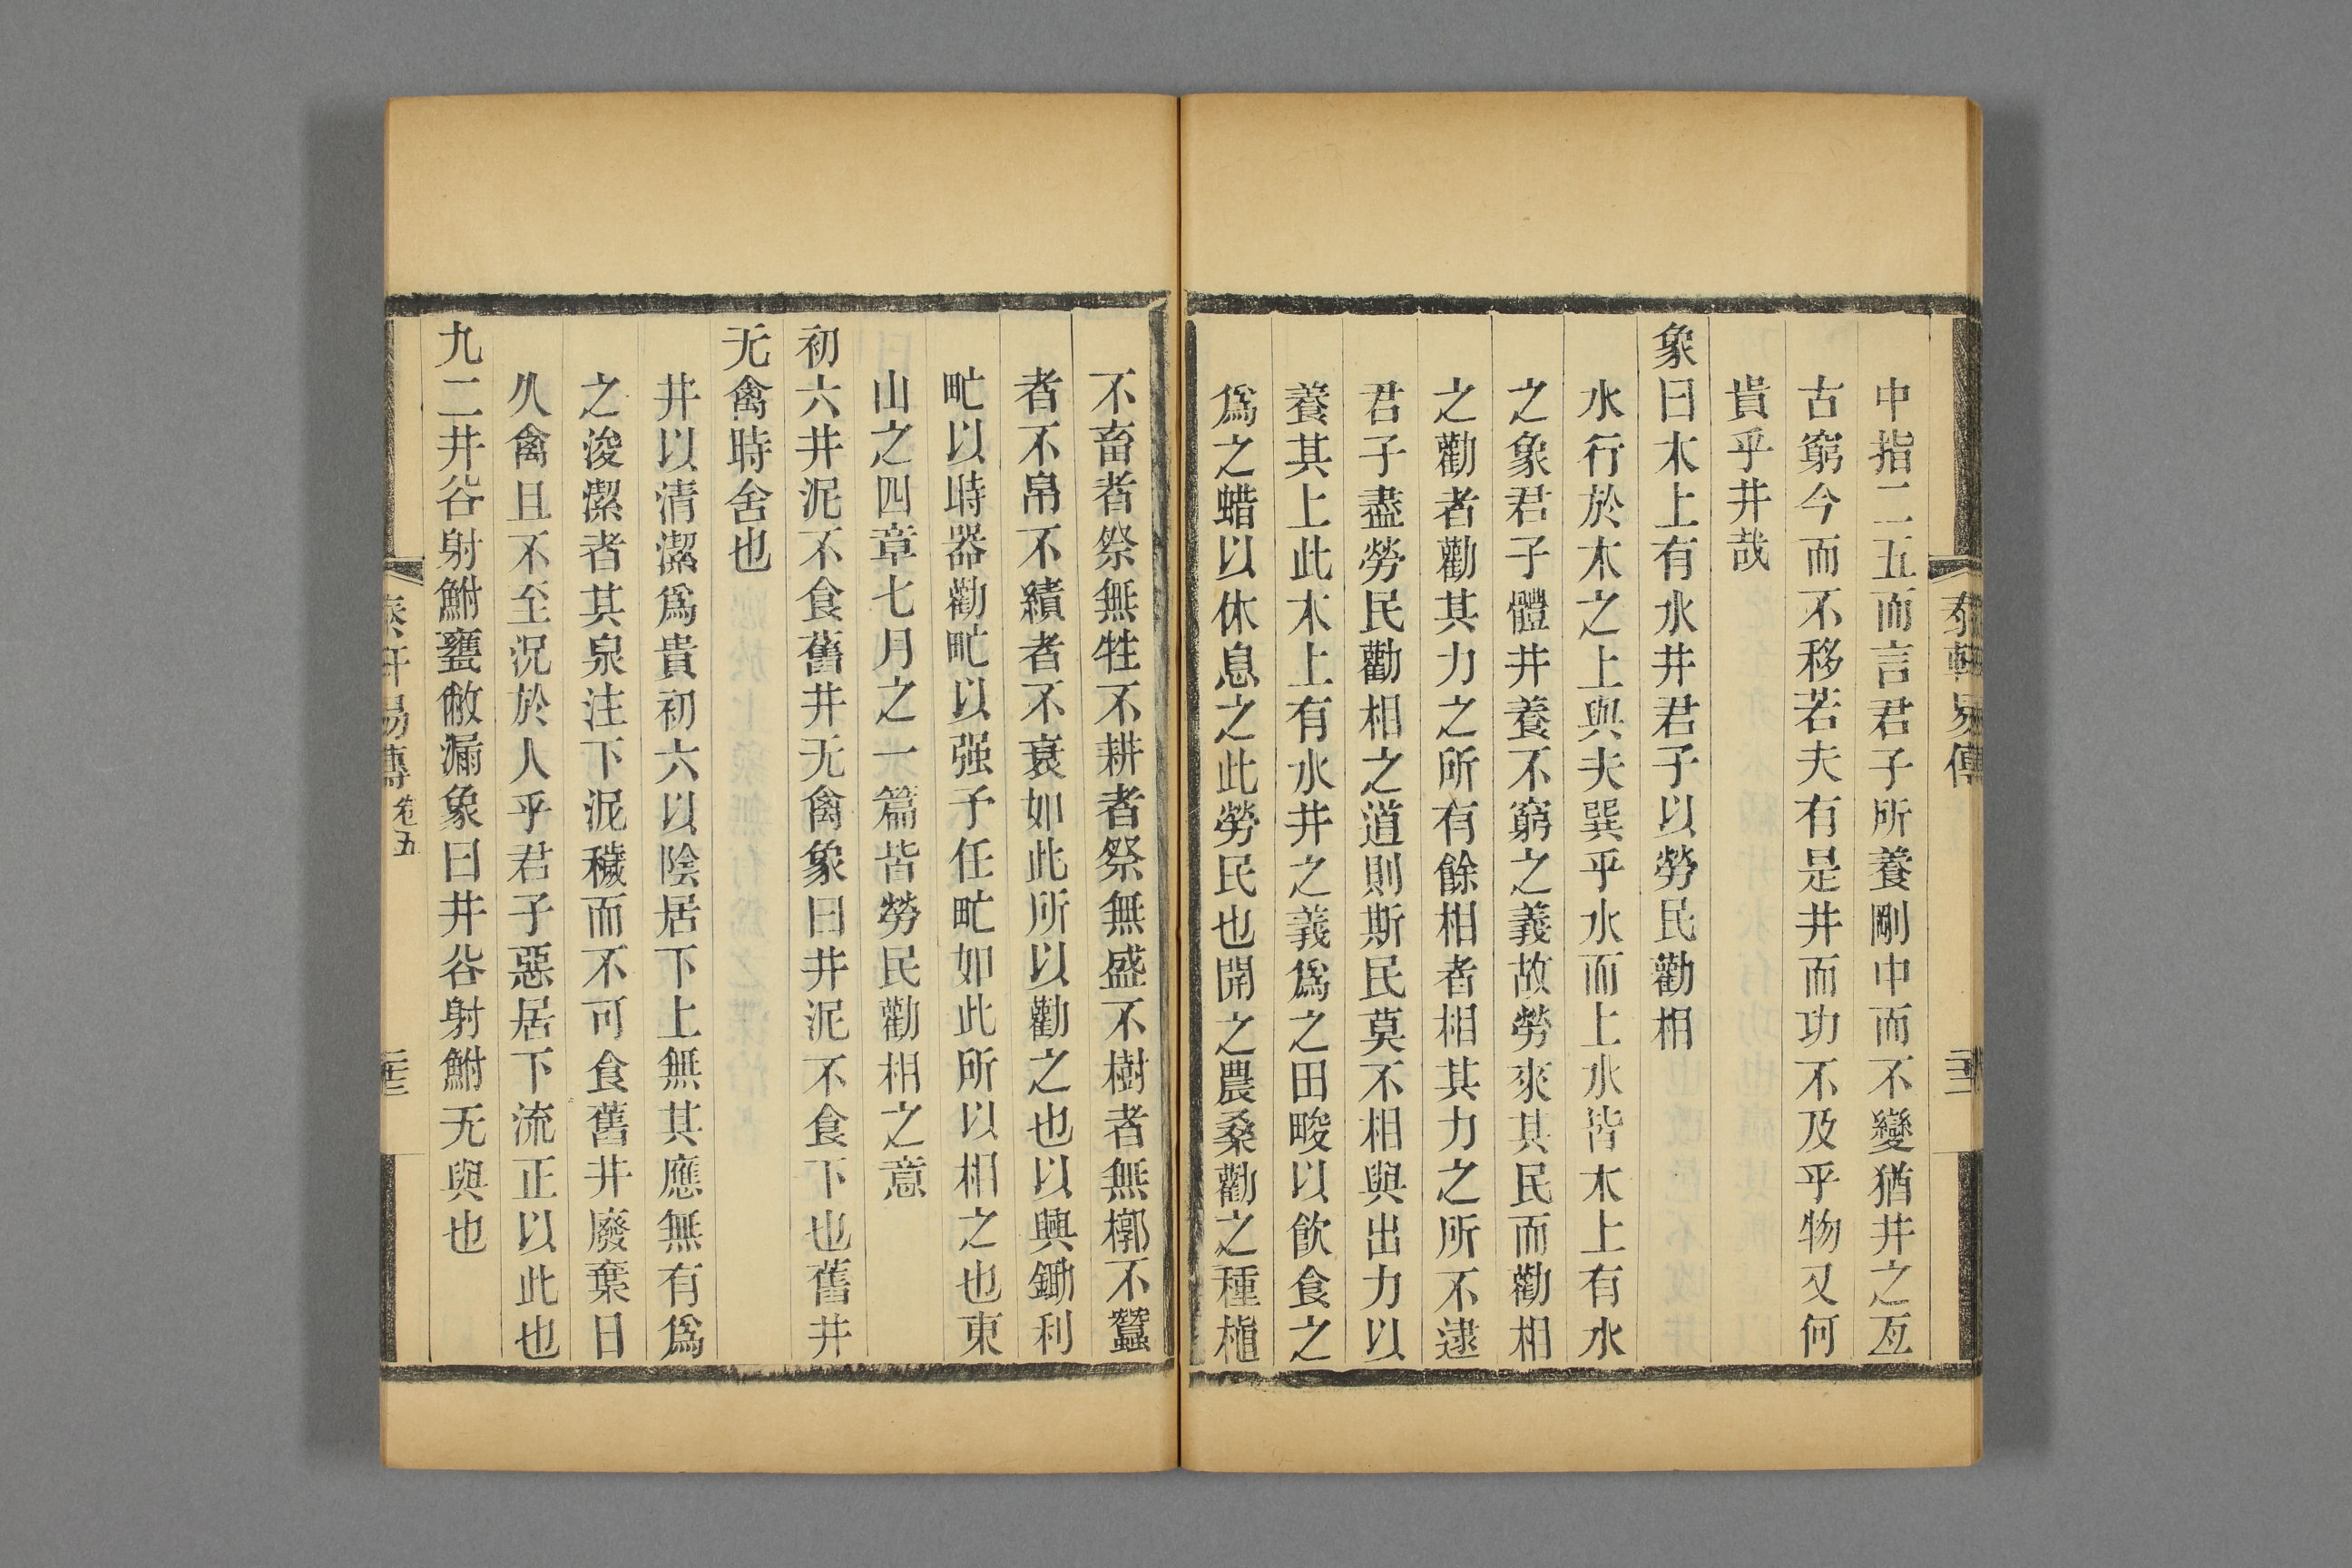 中指二五而言君子所養剛中而不變猶井之亙
古窮今而不移若夫有是井而功不及乎物又何
貴乎井哉
象曰木上有水井君子以勞民勸相
水行於木之上與夫巽乎水而上水皆木上有水
之象君子體井養不窮之義故勞來其民而勸相
之勸者勸其力之所有餘相者相其力之所不逮
君子盡勞民勸相之道則斯民莫不相與出力以
養其上此木上有水井之義爲之田畯以飲食之
爲之蜡以休息之此勞民也開之農桑勸之種植
不畜者祭無牲不耕者祭無盛不樹者無槨不蠶
者不帛不績者不衰如此所以勸之也以興鋤利
甿以時器勸甿以强予任甿如此所以相之也東
山之四章七月之一篇皆勞民勸相之意
初六井泥不食舊井无禽象曰井泥不食下也舊井
无禽時舍也
井以清潔爲貴初六以陰居下上無其應無有爲
之浚潔者其泉注下泥穢而不可食舊井廢棄日
久禽且不至況於人乎君子惡居下流正以此也
九二井谷射鮒甕敝漏象曰井谷射鮒无與也
易傳 卷五